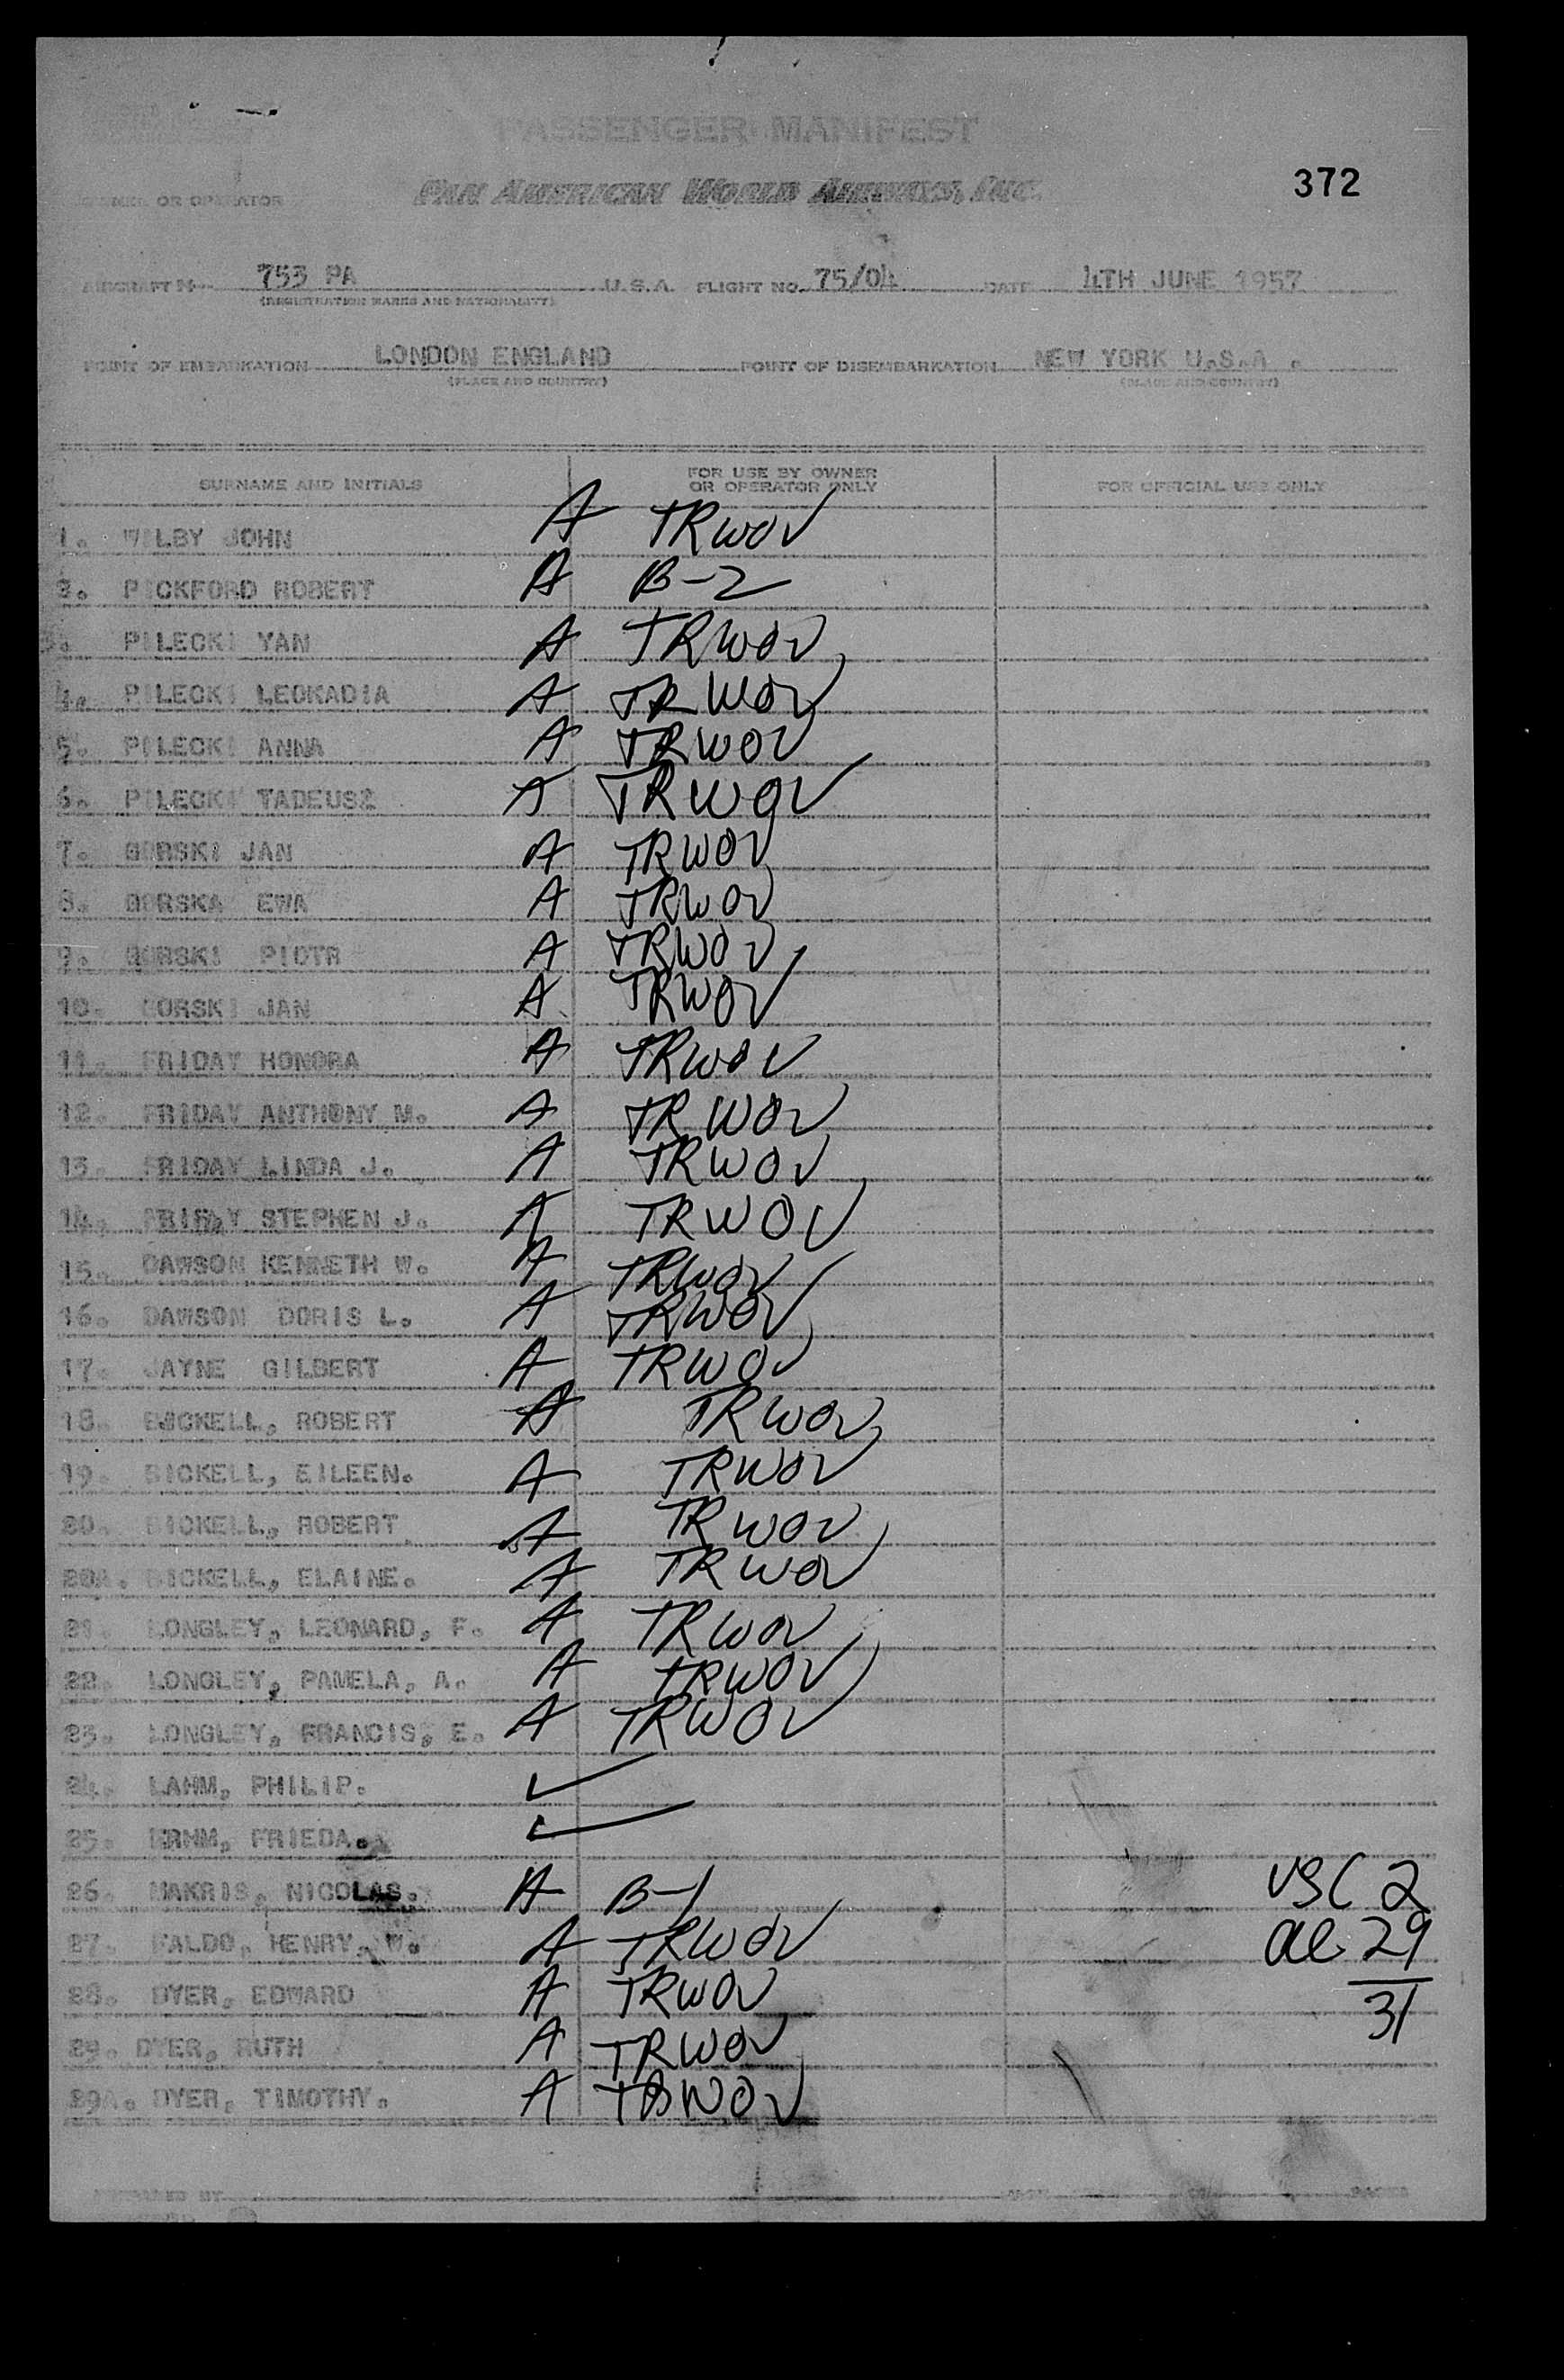 PASSENGER MANIFEST
372
OWNER OR OPERATOR PAN AMERICAN WORLD AIRWAYS, INC.
AIRCRAFT N 753 PA U.S.A. FLIGHT NO. 75/04 DATE 4TH JUNE 1957
(REGISTRATION MARKS AND NATIONALITY)
POINT OF EMBARKATION LONDON ENGLAND POINT OF DISEMBARKATION NEW YORK U.S.A.
(PLACE AND COUNTRY) (PLACE AND COUNTRY)
SURNAME AND INITIALS FOR USE BY OWNER OR OPERATOR ONLY FOR OFFICIAL USE ONLY
1. WILBY JOHN A TRWOV
2. PICKFORD ROBERT A B-2
3. PILECKI YAN A TRWOV
4. PILECKI LEOKADIA A TRWOV
5. PILECKI ANNA A TRWOV
6. PILECKI TADEUSZ A TRWOV
7. GORSKI JAN A TRWOV
8. GORSKA EWA A TRWOV
9. GORSKI PIOTR A TRWOV
10. GORSKI JAN A TRWOV
11. FRIDAY HONORA A TRWOV
12. FRIDAY ANTHONY M. A TRWOV
13. FRIDAY LINDA J. A TRWOV
14. FRIDAY STEPHEN J. A TRWOV
15. DAWSON KENNETH W. A TRWOV
16. DAWSON DORIS L. A TRWOV
17. JAYNE GILBERT A TRWOV
18. BICKELL, ROBERT A TRWOV
19. BICKELL, EILEEN. A TRWOV
20. BICKELL, ROBERT A TRWOV
20A. BICKELL, ELAINE. A TRWOV
21. LONGLEY, LEONARD, F. A TRWOV
22. LONGLEY, PAMELA, A. A TRWOV
23. LONGLEY, FRANCIS, E. A TRWOV
24. LAHM, PHILIP. ✓
25. FRIEDA. ✓
26. MAKRIS, NICOLAS. A B-1 USC 2
27. FALDO, HENRY, W. A TRWOV al 29
28. DYER, EDWARD A TRWOV 31
29. DYER, RUTH A TRWOV
29A. DYER, TIMOTHY. A TRWOV